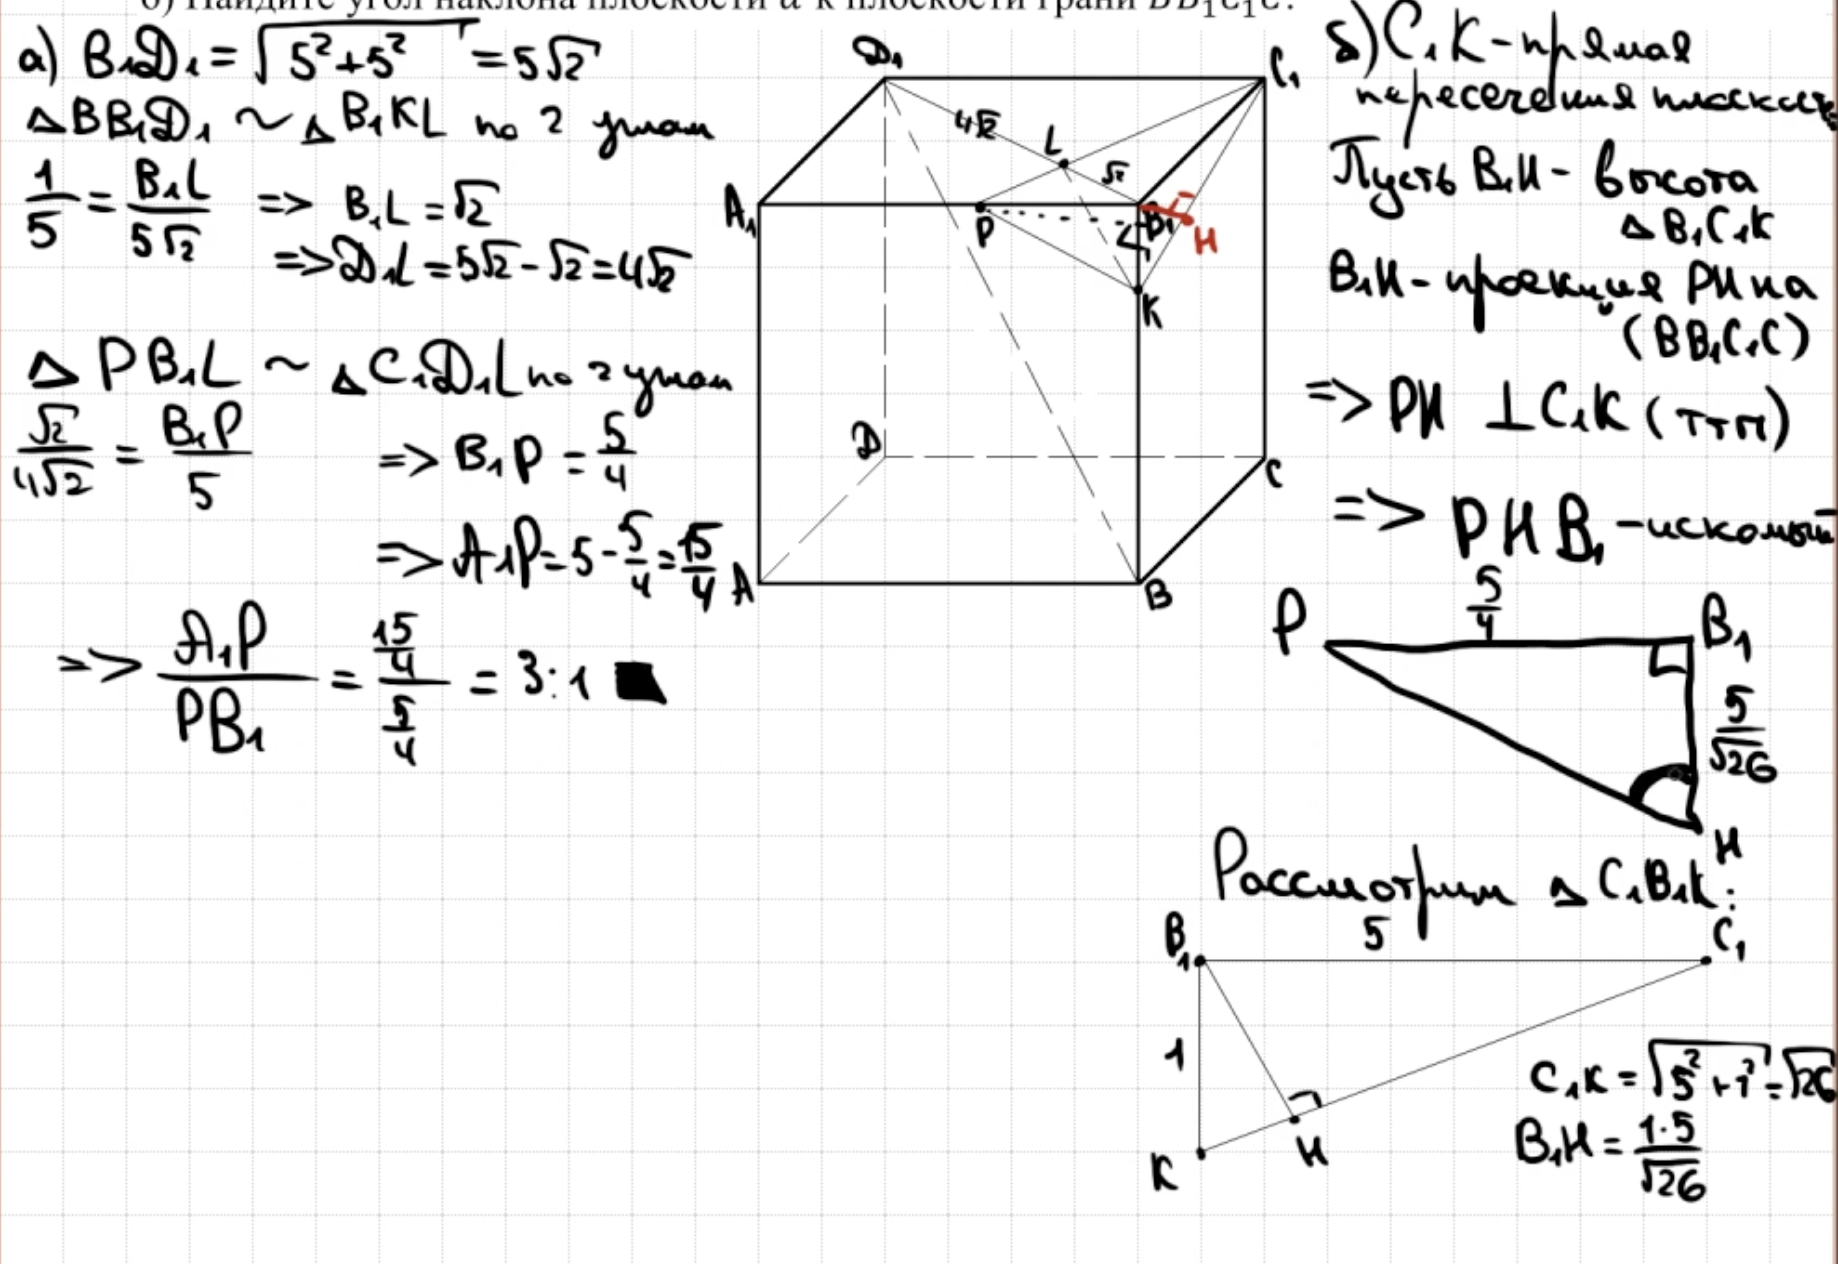 б) Найдите угол наклона плоскости α к плоскости грани BB₁C₁C.
а) B₁D₁ = √(5²+5²) = 5√2
△BB₁D₁ ~ △B₁KL по 2 углам
1/5 = B₁L/5√2 => B₁L = √2
=> D₁L = 5√2 - √2 = 4√2
△PB₁L ~ △C₁D₁L по 2 углам
√2/4√2 = B₁P/5 => B₁P = 5/4
=> A₁P = 5 - 5/4 = 15/4
=> A₁P/PB₁ = 15/4 / 5/4 = 3:1
D₁
C₁
4√2
L
√2
A₁
P
B₁
H
K
D
C
A
B
б) C₁K - прямая
пересечения плоскост
Пусть B₁H - высота
△B₁C₁K
B₁H - проекция PH на
(BB₁C₁C)
=> PH ⊥ C₁K (ТТП)
=> PHB₁ - искомый
P
5/4
B₁
5/√26
H
Рассмотрим △C₁B₁K:
B₁
5
C₁
1
K
H
C₁K = √(5²+1²) = √26
B₁H = 1·5/√26